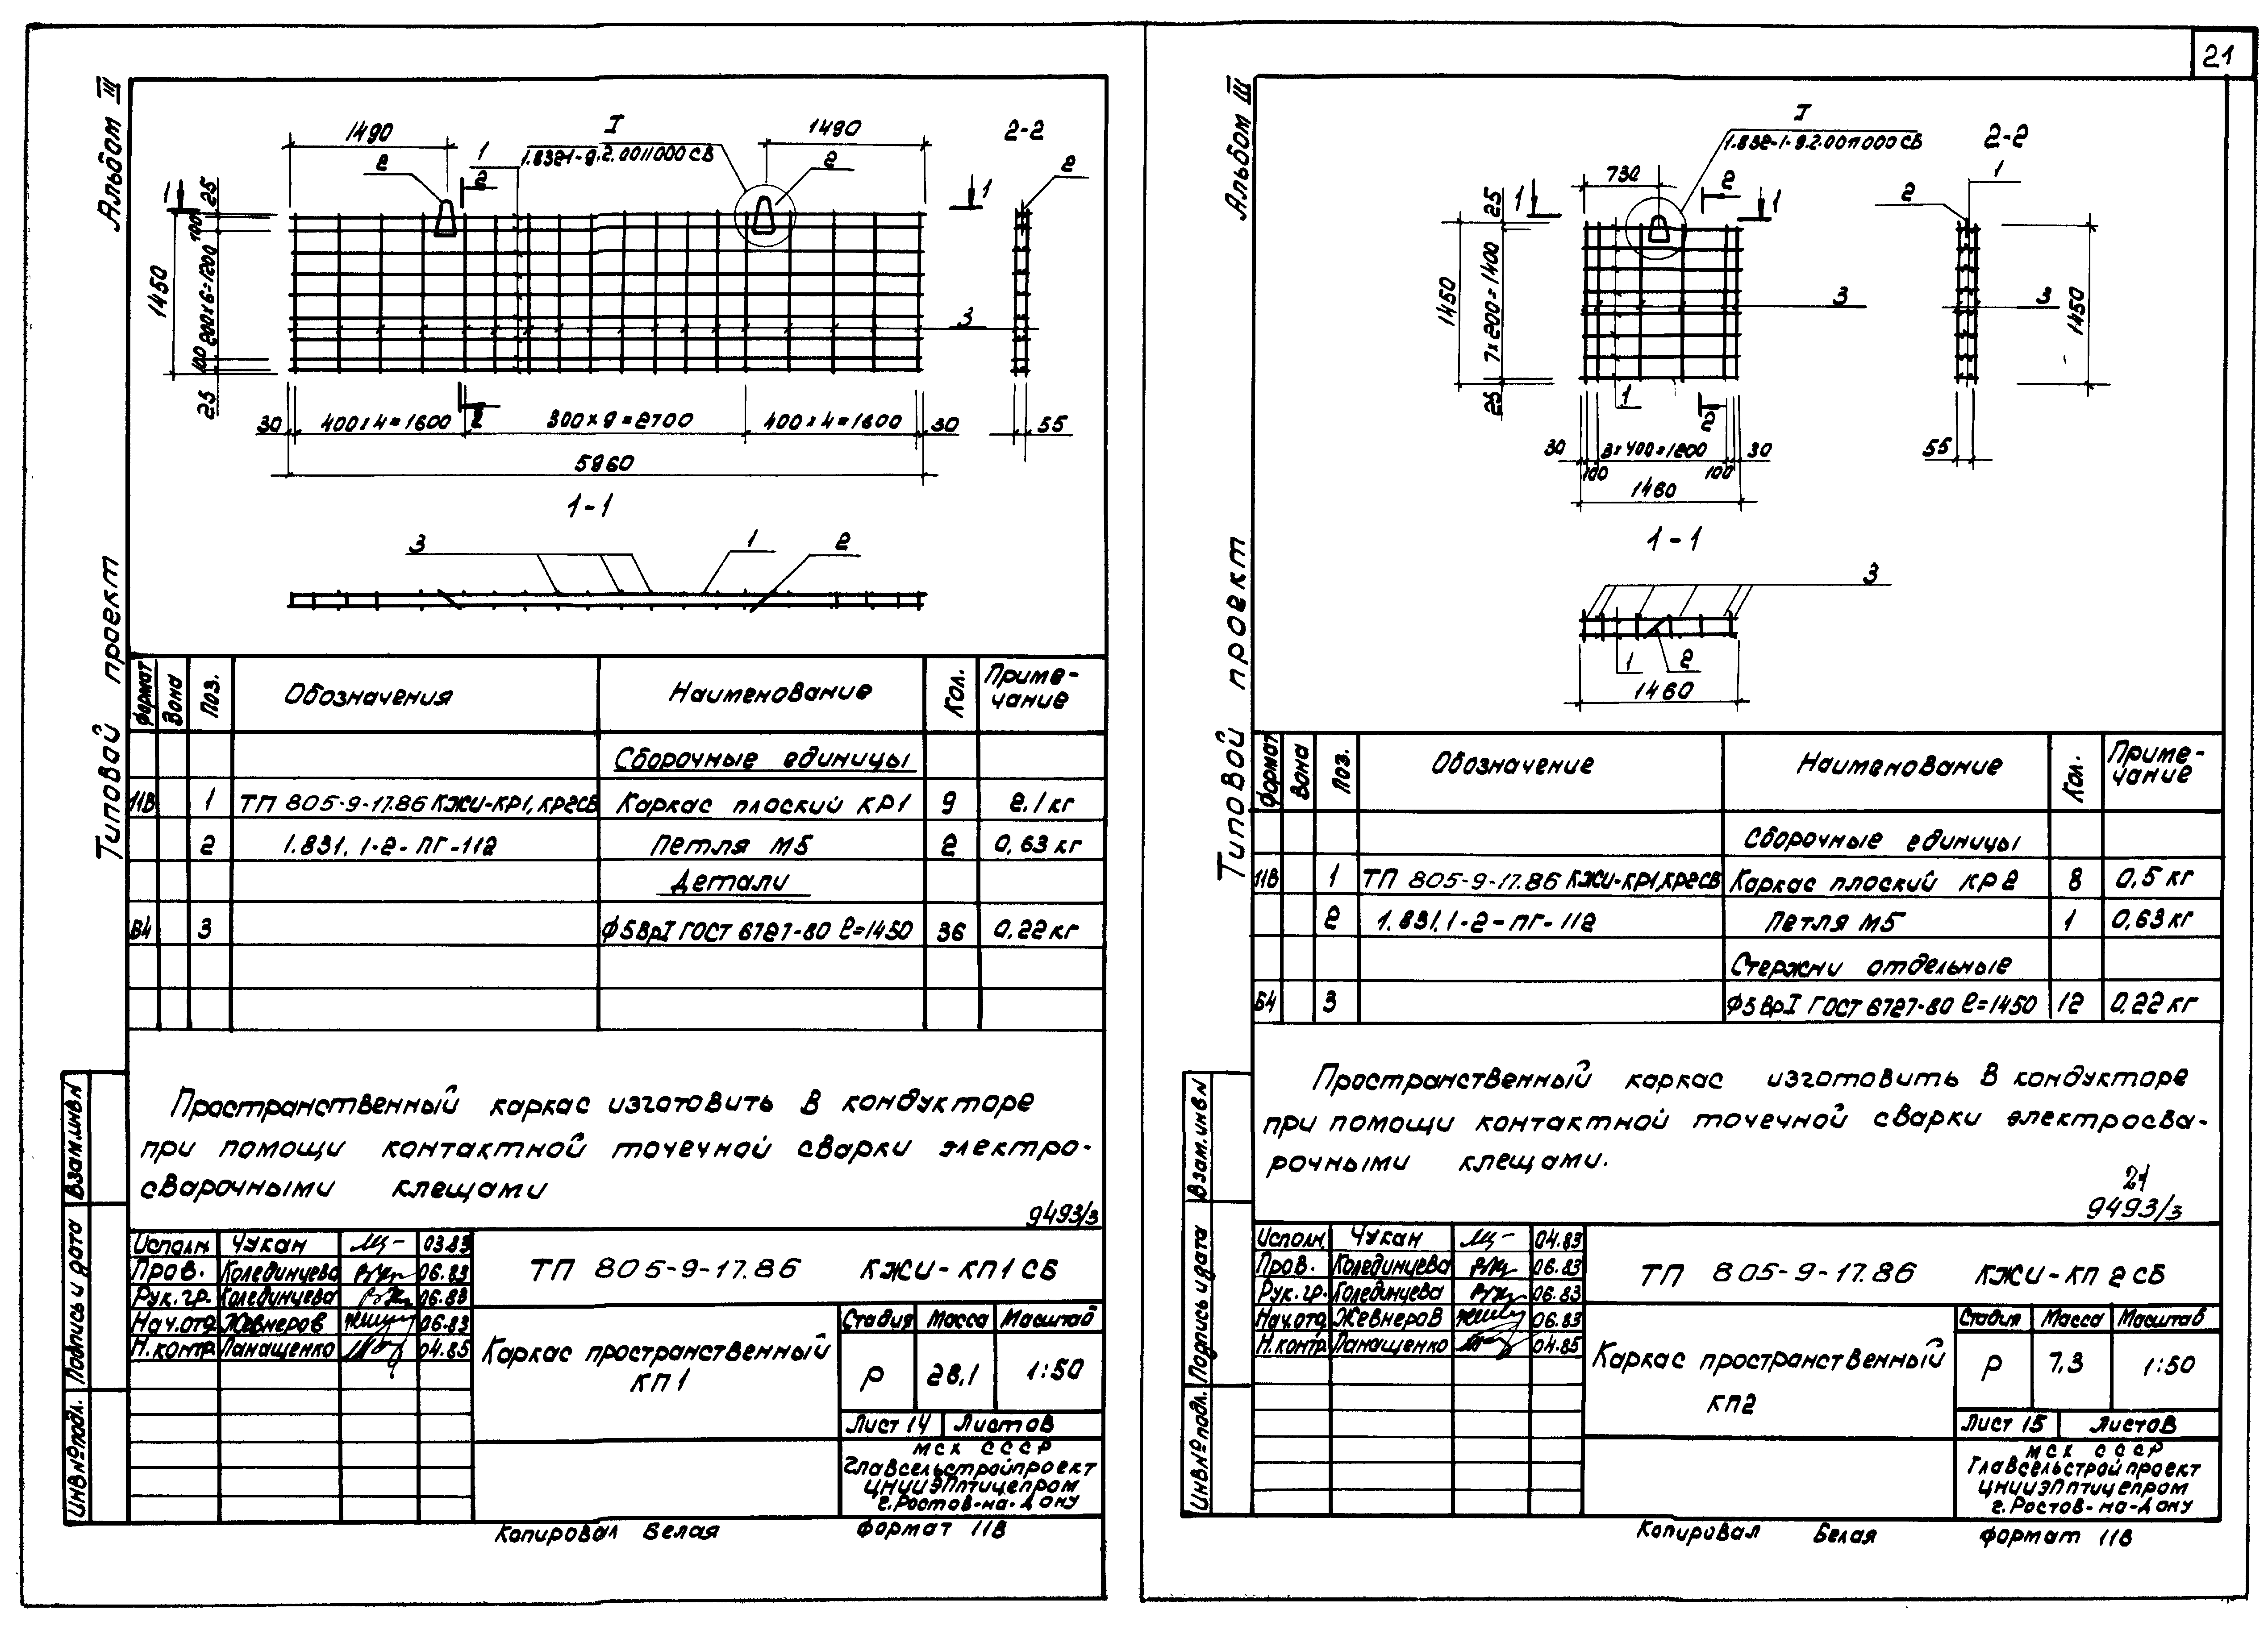 21
Альбом III
Типовой проект
1490
I
1490
2-2
1.832-1-9.2.0011000 СВ
2
1
2
2
2
1
1
25
100
200х6=1200
100
25
1450
3
30
400х4=1600
2
300х9=2700
400х4=1600
30
55
5960
1-1
3
1
2
Формат
Зона
Поз.
Обозначения
Наименование
Кол.
Приме-
чание
Сборочные единицы
11В 1 ТП 805-9-17.86 КЖИ-КР1, КР2СБ Каркас плоский КР1 9 2.1 кг
2 1.831.1-2-ПГ-112 Петля М5 2 0,63 кг
Детали
В4 3 Ф5ВрI ГОСТ 6727-80 ℓ=1450 36 0.22 кг
Пространственный каркас изготовить в кондукторе
при помощи контактной точечной сварки электро-
сварочными клещами
9493/3
Взам.инв N
Подпись и дата
Инв№подл.
Исполн. Чукан 03.83
Пров. Колединцева 06.83
Рук.гр. Колединцева 06.83
Нач.отд. Жевнеров 06.83
Н.контр. Панащенко 04.85
ТП 805-9-17.86 КЖИ-КП1 СБ
Каркас пространственный
КП1
Стадия Масса Масштаб
Р 28,1 1:50
Лист 14 Листов
МСХ СССР
Главсельстройпроект
ЦНИИЭПптицепром
г.Ростов-на-Дону
Копировал Белая Формат 11В
Альбом III
Типовой проект
I
1.832-1-9.2.0011000 СВ
2-2
730
2
1
1
1
2
25
7х200=1400
25
1450
3
3
1450
1
2
30
3х400=1200
30
100
100
55
1460
1-1
3
1
2
1460
Формат
Зона
Поз.
Обозначение
Наименование
Кол.
Приме-
чание
Сборочные единицы
11В 1 ТП 805-9-17.86 КЖИ-КР1,КР2СБ Каркас плоский КР2 8 0,5 кг
2 1.831.1-2-ПГ-112 Петля М5 1 0,63 кг
Стержни отдельные
Б4 3 Ф5ВрI ГОСТ 6727-80 ℓ=1450 12 0.22 кг
Пространственный каркас изготовить в кондукторе
при помощи контактной точечной сварки электросва-
рочными клещами.
21
9493/3
Взам.инв N
Подпись и дата
Инв№подл.
Исполн. Чукан 04.83
Пров. Колединцева 06.83
Рук.гр. Колединцева 06.83
Нач.отд. Жевнеров 06.83
Н.контр. Панащенко 04.85
ТП 805-9-17.86 КЖИ-КП 2 СБ
Каркас пространственный
КП2
Стадия Масса Масштаб
Р 7,3 1:50
Лист 15 Листов
МСХ СССР
Главсельстройпроект
ЦНИИЭПптицепром
г.Ростов-на-Дону
Копировал Белая Формат 11В